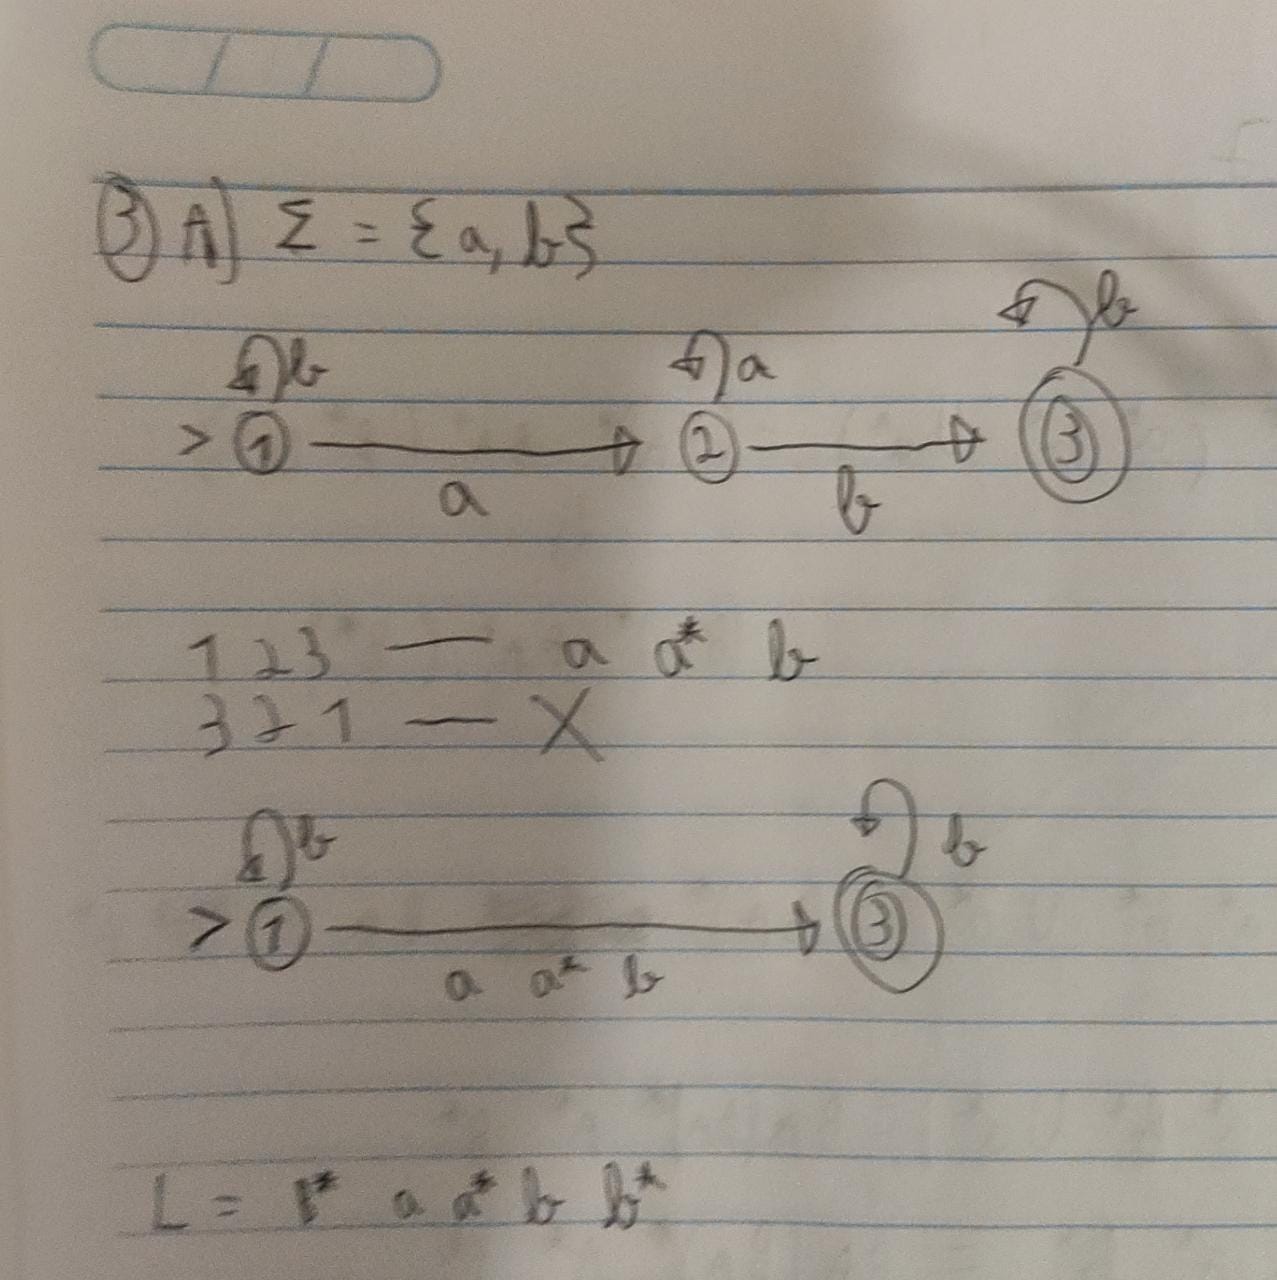 ③ A) Σ = {a, b}
b a b
> 1 2 3
a b
1 2 3 — a a* b
3 2 1 — X
b b
> 1 3
a a* b
L = b* a a* b b*